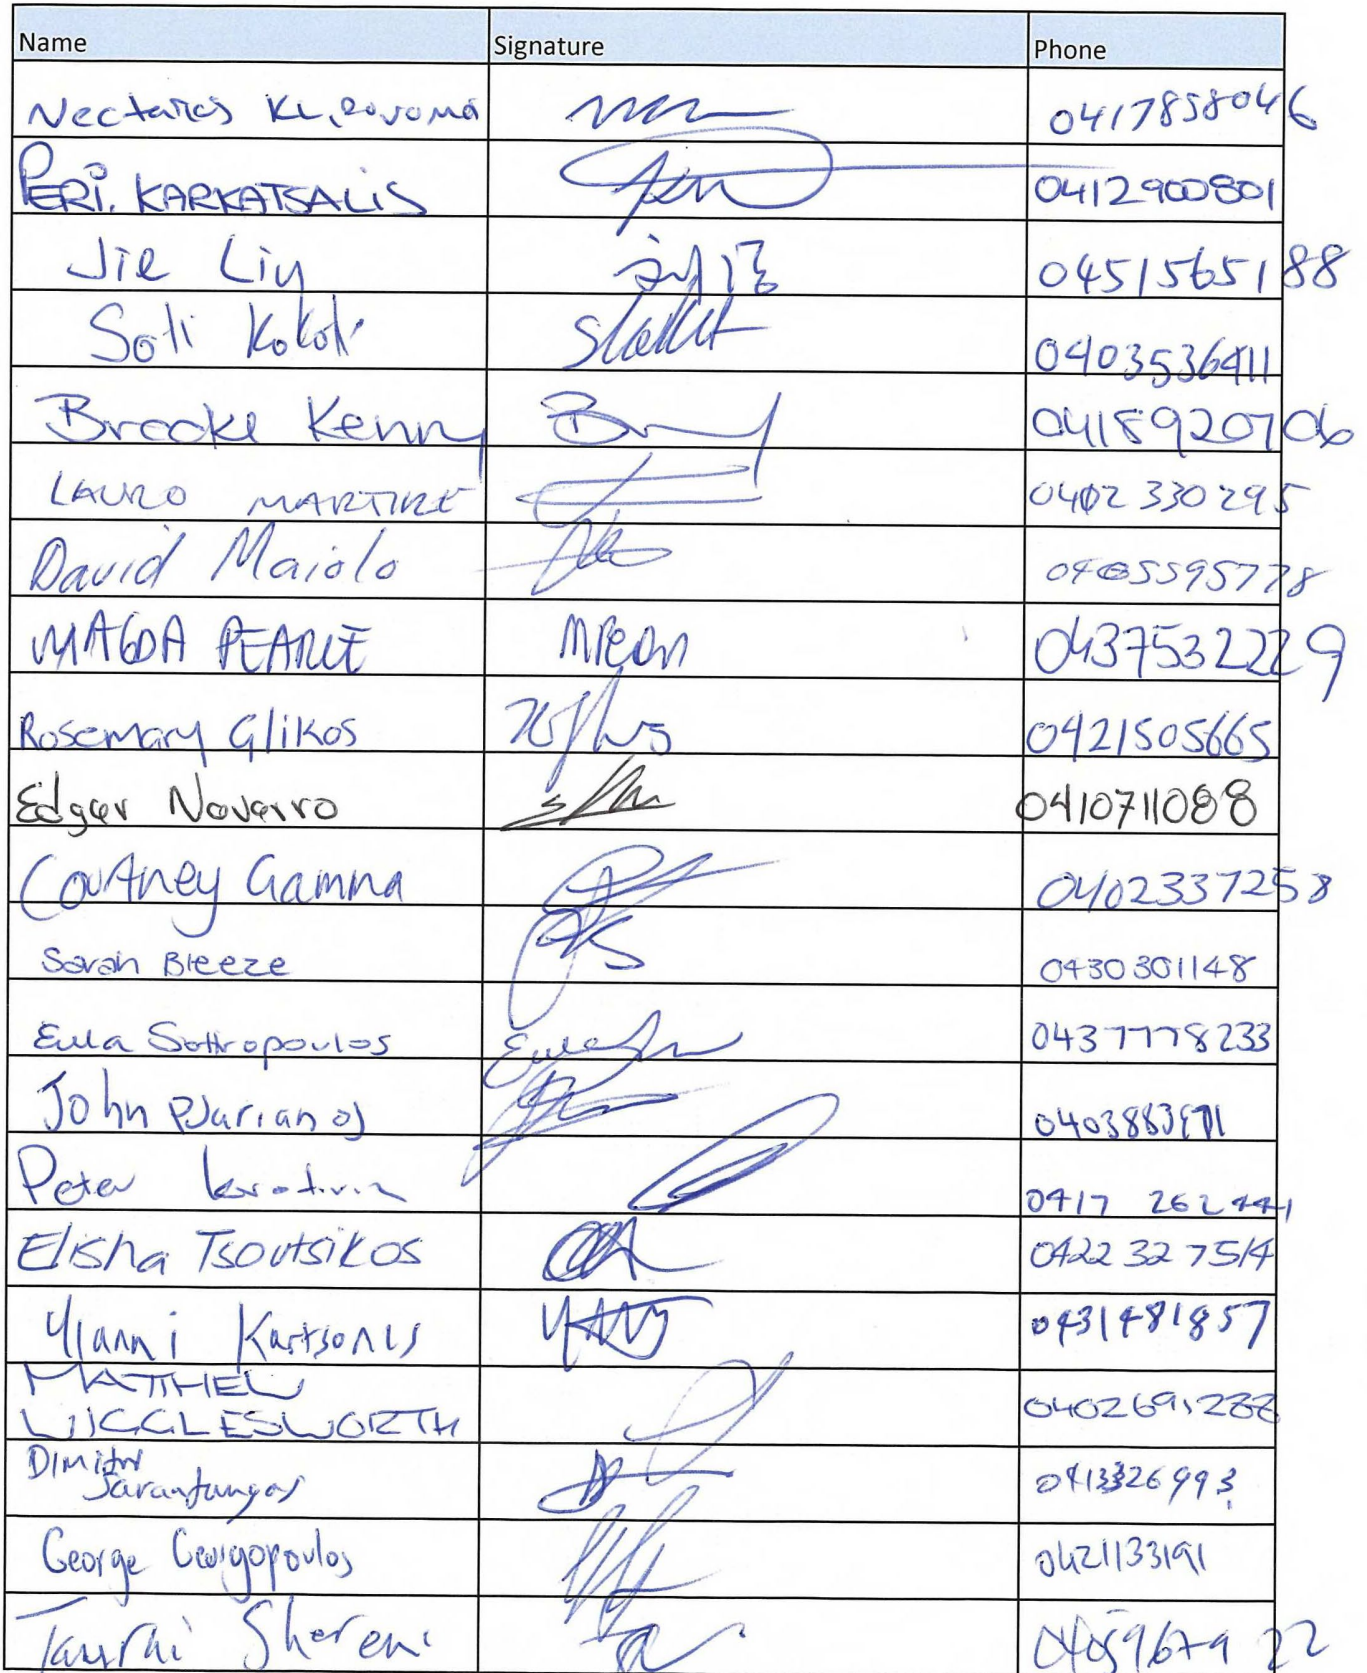 Name Signature Phone
Nectarios 0417858046
PERI. KARKATSALIS 0412900801
Jie Liu 0451565188
Soti Kokoti 0403536411
Brooke Kenny 0418920706
LAURO MARTIRE 0402 330 295
David Maiolo 0405595778
MAGDA PEARCE 0437532229
Rosemary Glikos 0421505665
Edgar Navarro 0410711088
Courtney Gamma 0402337258
Sarah Breeze 0430301148
Eula Sotiropoulos 0437778233
John
Peter 0417 262 441
Elisha Tsoutsikos 0422 32 7514
Yianni Kartsonis 0431481857
MATTHEW
WIGGLESWORTH
Dimitri
Sarantungas 0413326993
George Georgopoulos 0421133191
Shereni